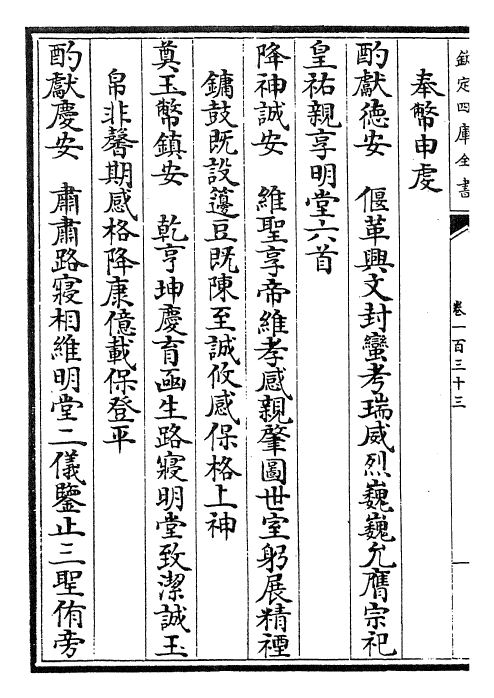 欽定四庫全書
卷一百三十三
奉幣申虔
酌獻德安　偃革興文封巒考瑞威烈巍巍允膺宗祀
皇祐親享明堂六首
降神誠安　維聖享帝維孝感親肇圖世室躬展精禋
鏞鼓既設籩豆既陳至誠攸感保格上神
奠玉幣鎮安　乾亨坤慶育函生路寢明堂致潔誠玉
帛非馨期感格降康億載保登平
酌獻慶安　肅肅路寢相維明堂二儀鑒止三聖侑旁